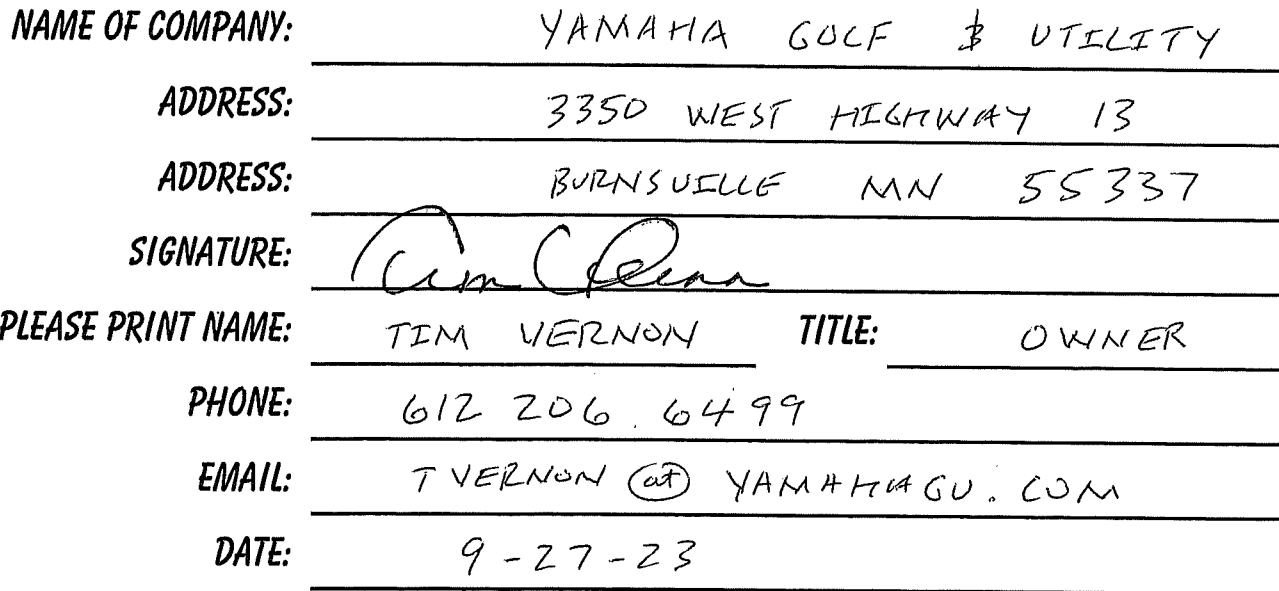 NAME OF COMPANY: YAMAHA GOLF & UTILITY
ADDRESS: 3350 WEST HIGHWAY 13
ADDRESS: BURNSVILLE MN 55337
SIGNATURE: Tim
PLEASE PRINT NAME: TIM VERNON TITLE: OWNER
PHONE: 612 206 6499
EMAIL: TVERNON at YAMAHAGU.COM
DATE: 9-27-23